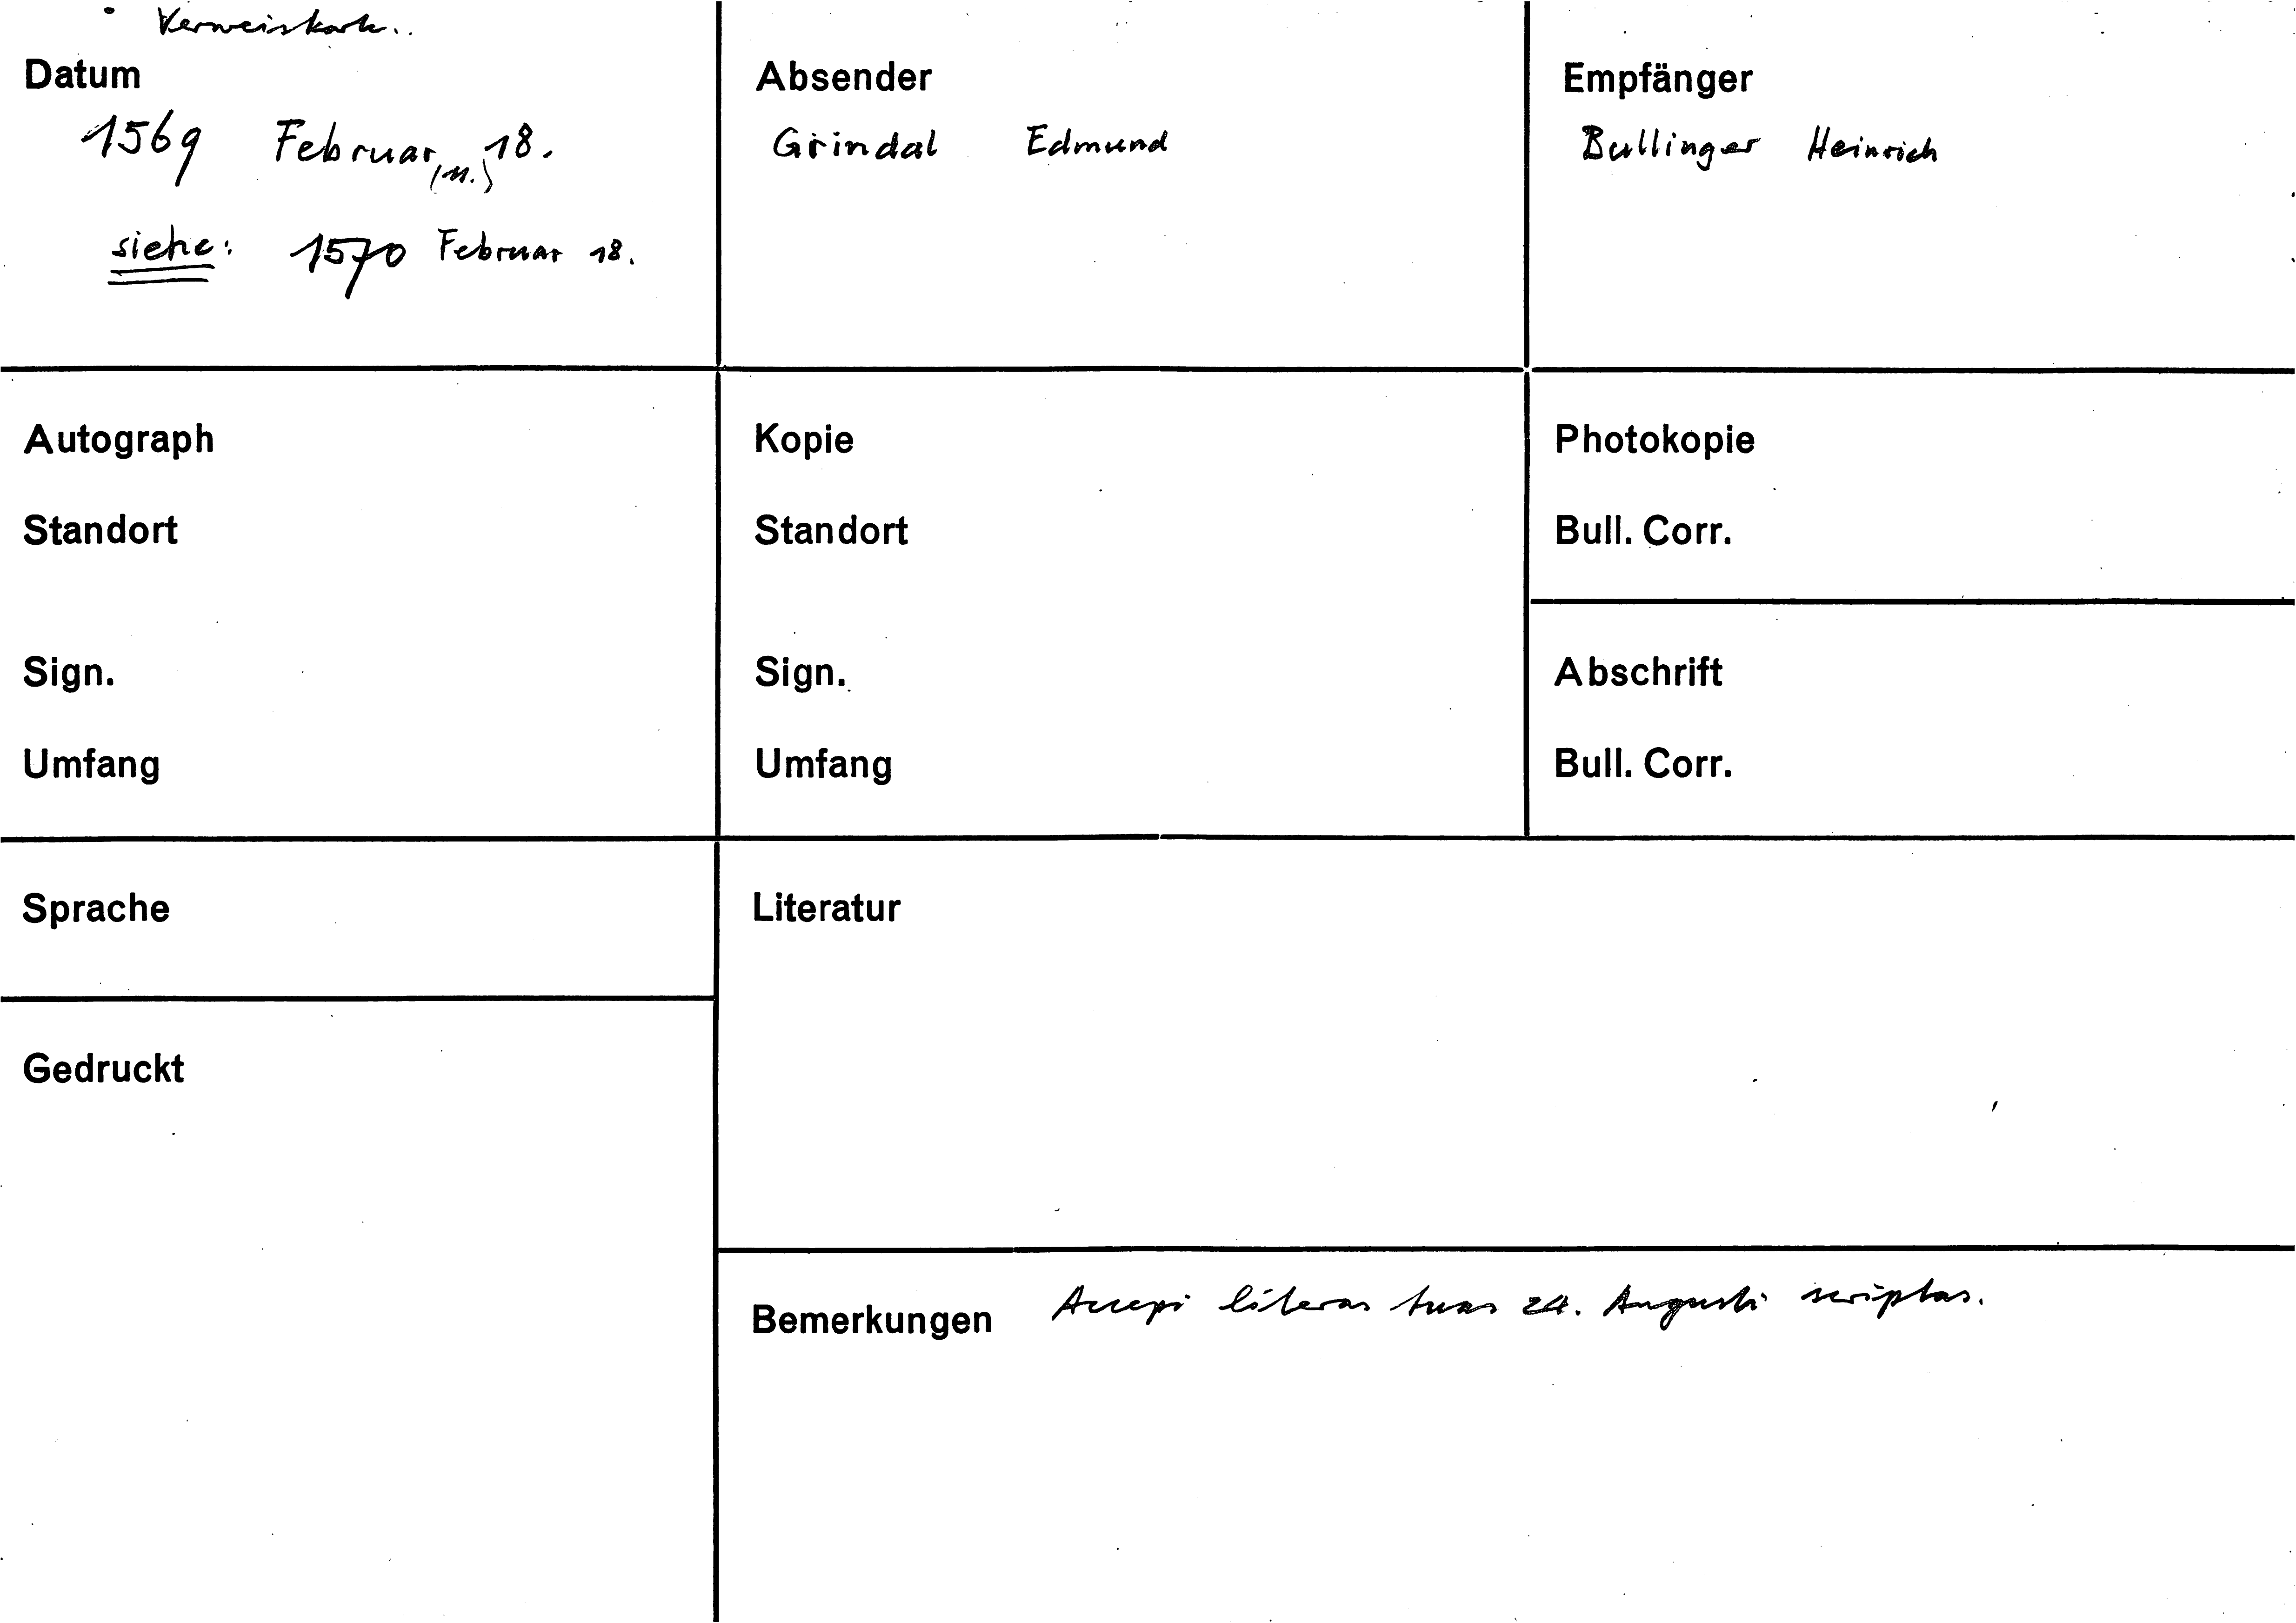 Verweiskarte.
Datum
1569 Februar (n.) 18.
siehe: 1570 Februar 18.
Absender
Grindal Edmund
Empfänger
Bullinger Heinrich
Autograph
Standort
Sign.
Umfang
Kopie
Standort
Sign.
Umfang
Photokopie
Bull. Corr.
Abschrift
Bull. Corr.
Sprache
Gedruckt
Literatur
Bemerkungen Accepi literas tuas 24. Augusti scriptas.